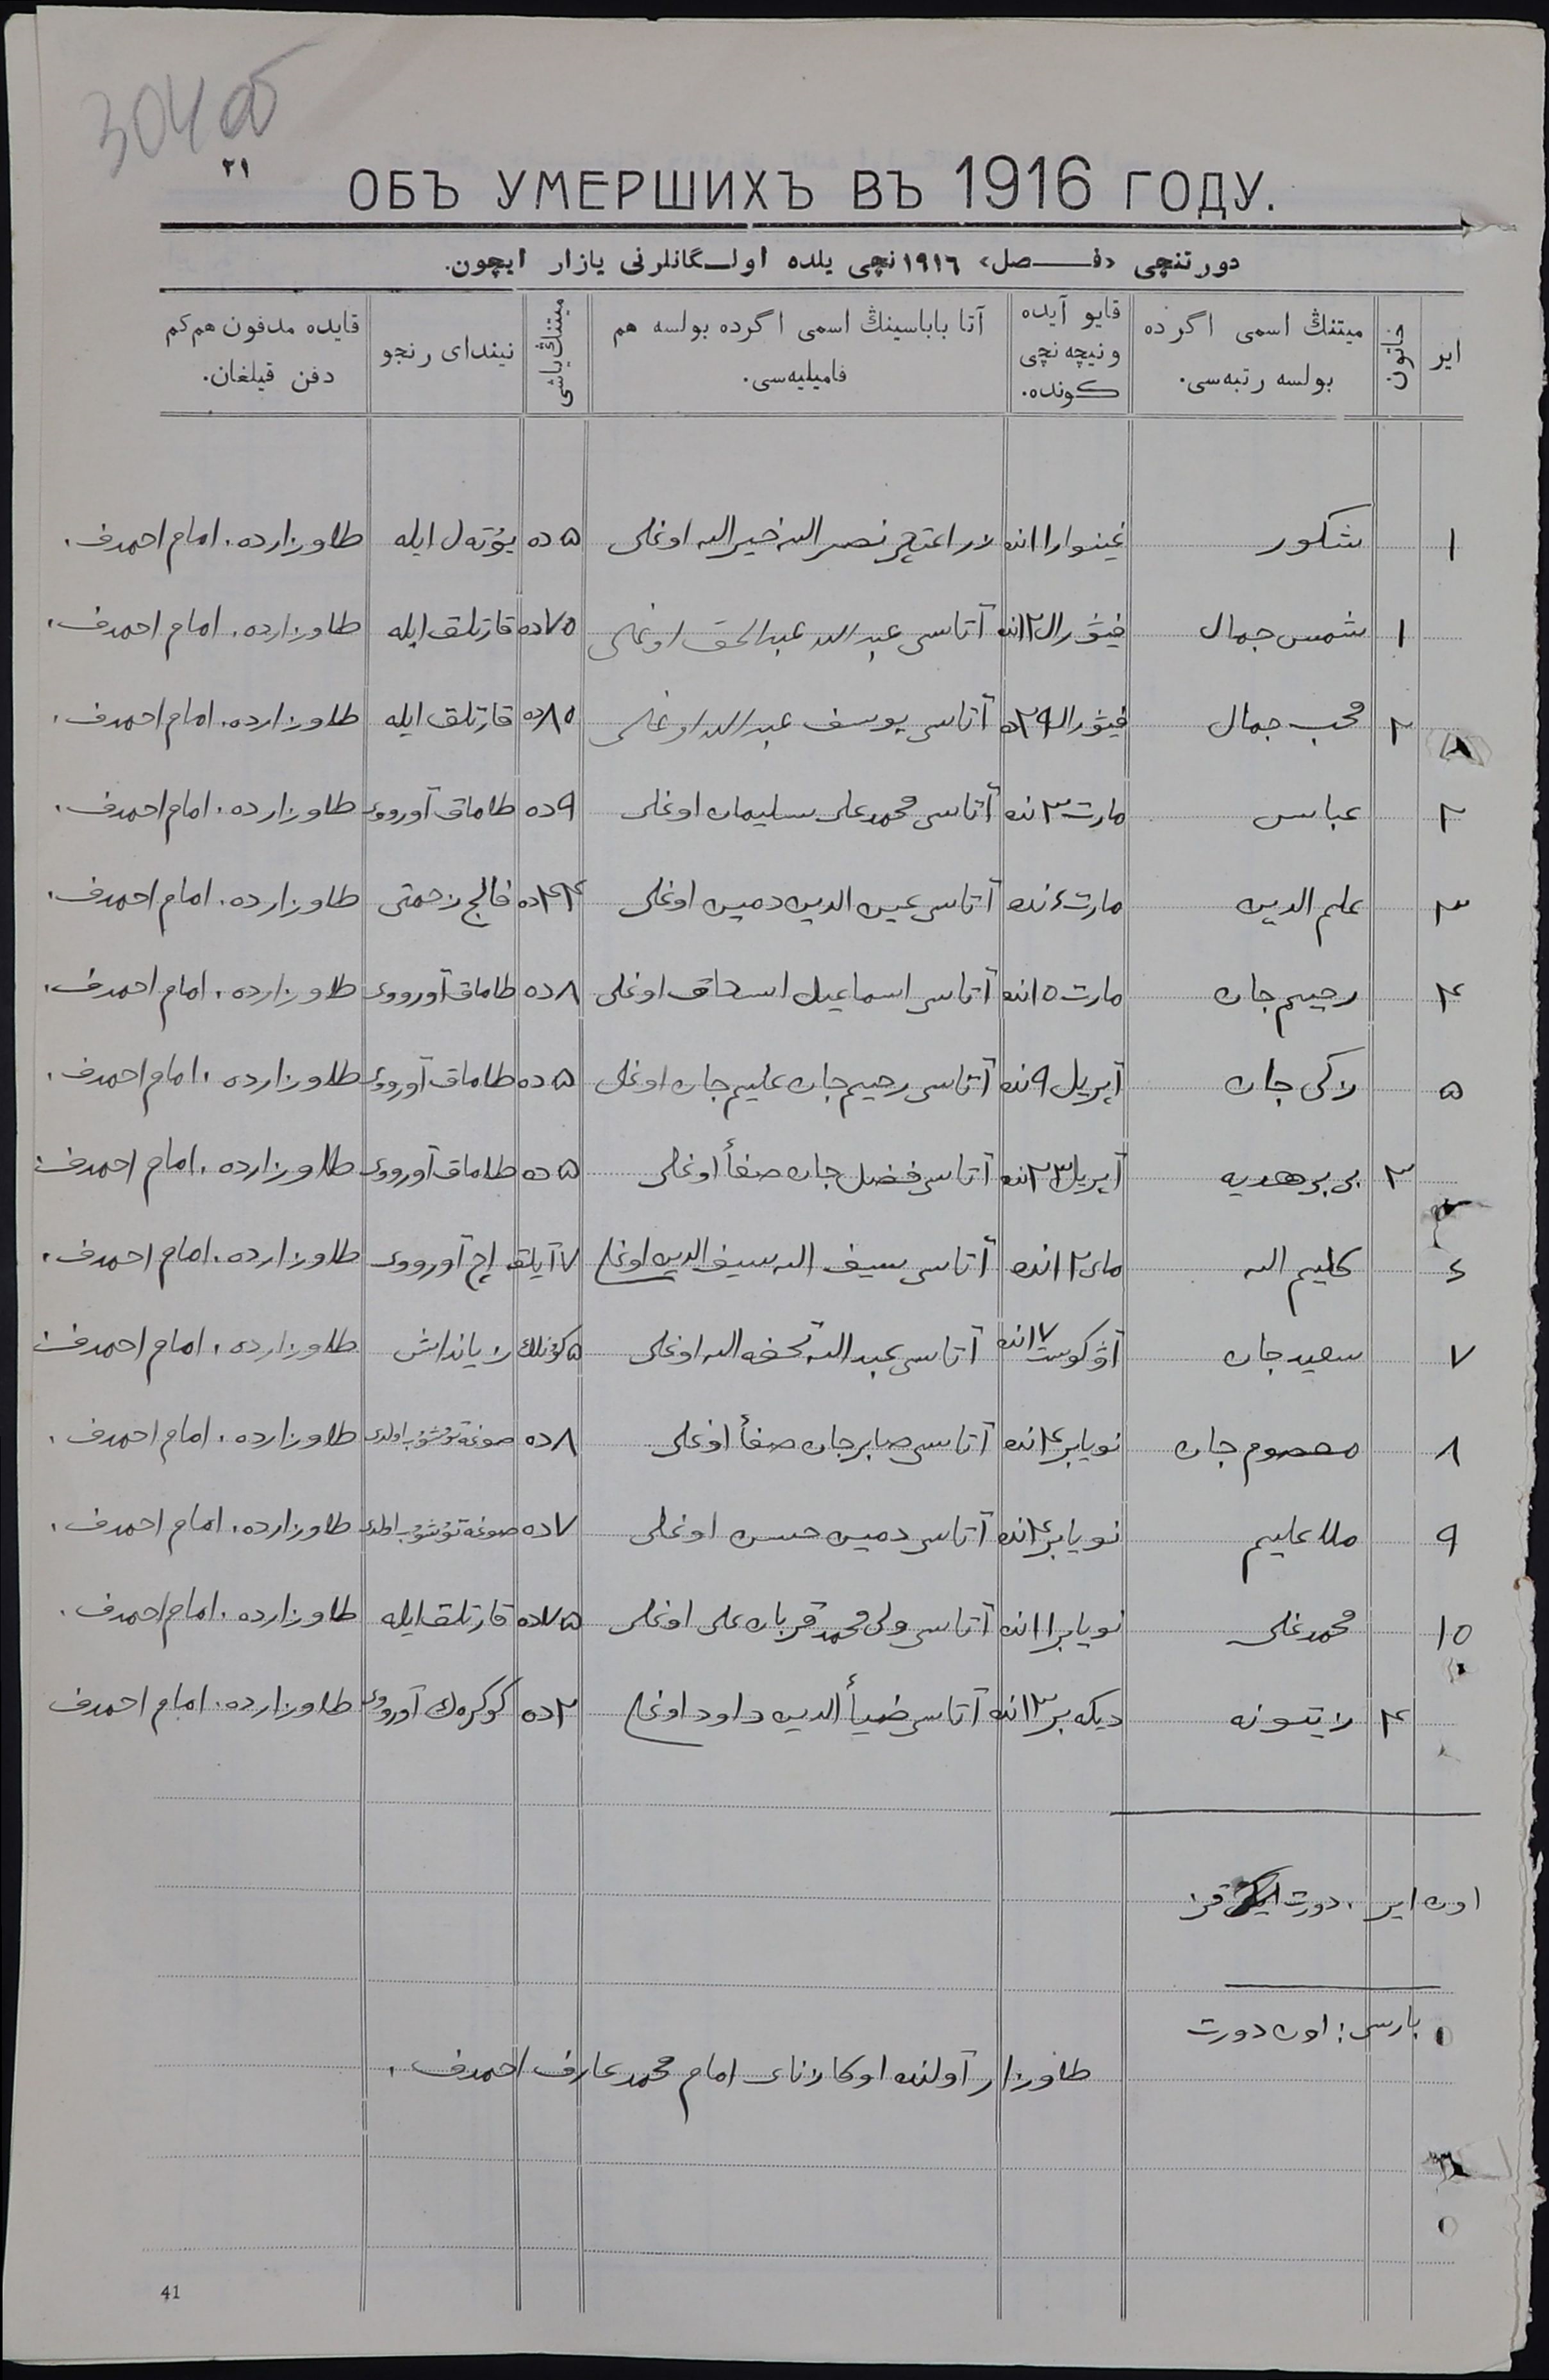 304 об
٢١
ОБЪ УМЕРШИХЪ ВЪ 1916 ГОДУ.
دورتنچی «فـصل» ١٩١٦ نچی يلده اولـگانلرنی يازار ايچون.
اير
خاتون
ميتنڭ اسمی اگرده بولسه رتبه‌سی.
قايو آيده ونيچه نچی کونده.
آتا باباسينڭ اسمی اگرده بولسه هم فاميليه‌سی.
ميتنڭ ياشی
نيندای رنجو
قايده مدفون هم کم دفن قيلغان.
١ شکور غينوار ١١ انده نصر الله خير الله اوغلی ٥ ده يوتەل ايله طاوزارده. امام احمدف.
١ شمس جمال فيۋرال ١٢ انده آتاسی عبد الله عبد الحق اوغلی ٧٥ ده قارتلق ايله طاوزارده. امام احمدف.
٢ محب جمال فيۋرال ٢٩ ده آتاسی يوسف عبد الله اوغلی ٨٥ ده قارتلق ايله طاوزارده. امام احمدف.
٢ عباس مارت ٣ نده آتاسی محمد علی سليمان اوغلی ٩ ده طاماق آورووی طاوزارده. امام احمدف.
٣ علم الدين مارت ٤ نده آتاسی عين الدين دمين اوغلی ٤٤ ده فالج زحمتی طاوزارده. امام احمدف.
٤ رحيم جان مارت ١٥ انده آتاسی اسماعيل اسحاق اوغلی ٨ ده طاماق آورووی طاوزارده. امام احمدف.
٥ زکی جان آپريل ٩ نده آتاسی رحيم جان عليم جان اوغلی ٥ ده طاماق آورووی طاوزارده. امام احمدف.
٣ بی بی هديه آپريل ٢٣ انده آتاسی فضل جان صفأ اوغلی ٥ ده طاماق آورووی طاوزارده. امام احمدف
٦ کليم الله مای ١٢ انده آتاسی سيف الله سيف الدين اوغلی ٧ آيلق اچ آورووی طاوزارده. امام احمدف.
٧ سعيد جان آۋگوست ١٧ انده آتاسی عبد الله تحفه الله اوغلی ٥ کونلک زياندانش طاوزارده. امام احمدف
٨ معصوم جان نويابر ١٤ انده آتاسی صابر جان صفأ اوغلی ٨ ده صوغه توشوب اولدی طاوزارده. امام احمدف.
٩ ملا عليم نويابر ١٤ انده آتاسی دمين حسن اوغلی ٧ ده صوغه توشوب اولدی طاوزارده. امام احمدف.
١٠ محمد علی نويابر ١١ انده آتاسی ولی محمد قربان علی اوغلی ٧٥ ده قارتلق ايله طاوزارده. امام احمدف.
٤ زيتونه ديکه بر ١٣ انده آتاسی ضيأ الدين داود اوغلی ٢ ده کوکرەک آورووی طاوزارده. امام احمدف
اون اير. دورت قز
بارسی: اون دورت
طاوزار آولنده اوکازنای امام محمد عارف احمدف.
41